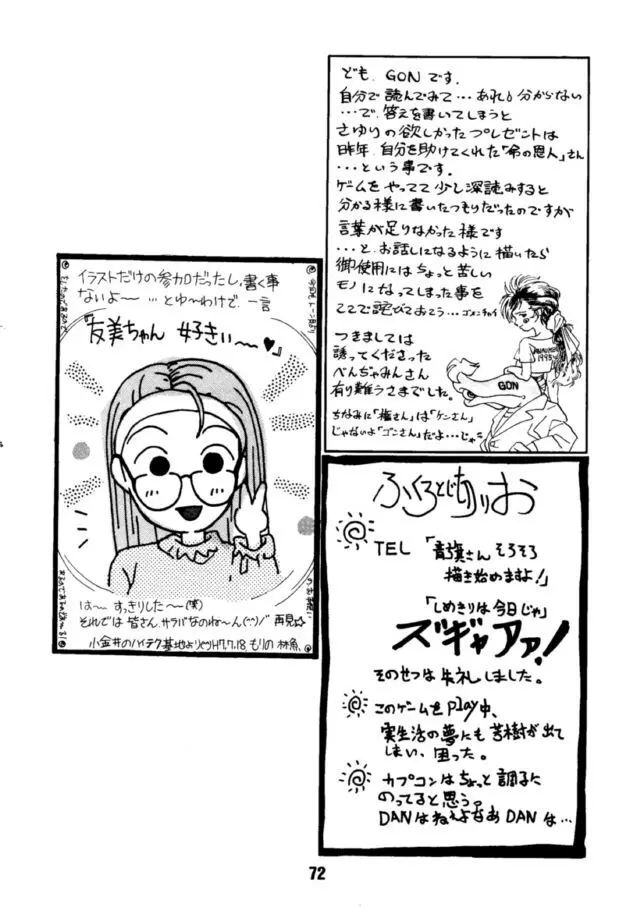 ども、GONです。
自分で読んでみて…あれ!分からない
…で、答えを書いてしまうと
さゆりの欲しかったプレゼントは
昨年、自分を助けてくれた「命の恩人」さん
…という事です。
ゲームをやってて少し深読みすると
分かる様に書いたつもりだったのですが
言葉が足りなかった様です
…と、お話しになるように描いたら
御使用にはちょっと苦しい
モノになってしまった事を
ここで詫びておこう…ゴメンチャイ
つきましては
誘ってくださった
べんぢゃみんさん
有り難うさまでした。
ちなみに「権さん」は「ケンさん」
じゃないよ「ゴンさん」だよ…じゃ
1995
GON
イラストだけの参加だったし、書く事
ないよ〜 …とゆ〜わけで、一言
『友美ちゃん 好きぃ〜〜♥』
は〜 すっきりした〜(笑)
それでは皆さん、サラバなのね〜ん(^^)/ 再見☆
小金井のハイテク基地より H7.7.18 もりの
ふくろとじきりお
TEL 「青旗さんそろそろ
描き始めますよ!」
「しめきりは今日じゃ」
ズギャアァ!
そのせつは失礼しました。
このゲームをplay中、
実生活の夢にも若樹が出て
しまい、困った。
カプコンはちょっと調子に
のってると思う。
DANはねえよなあDANは…
72